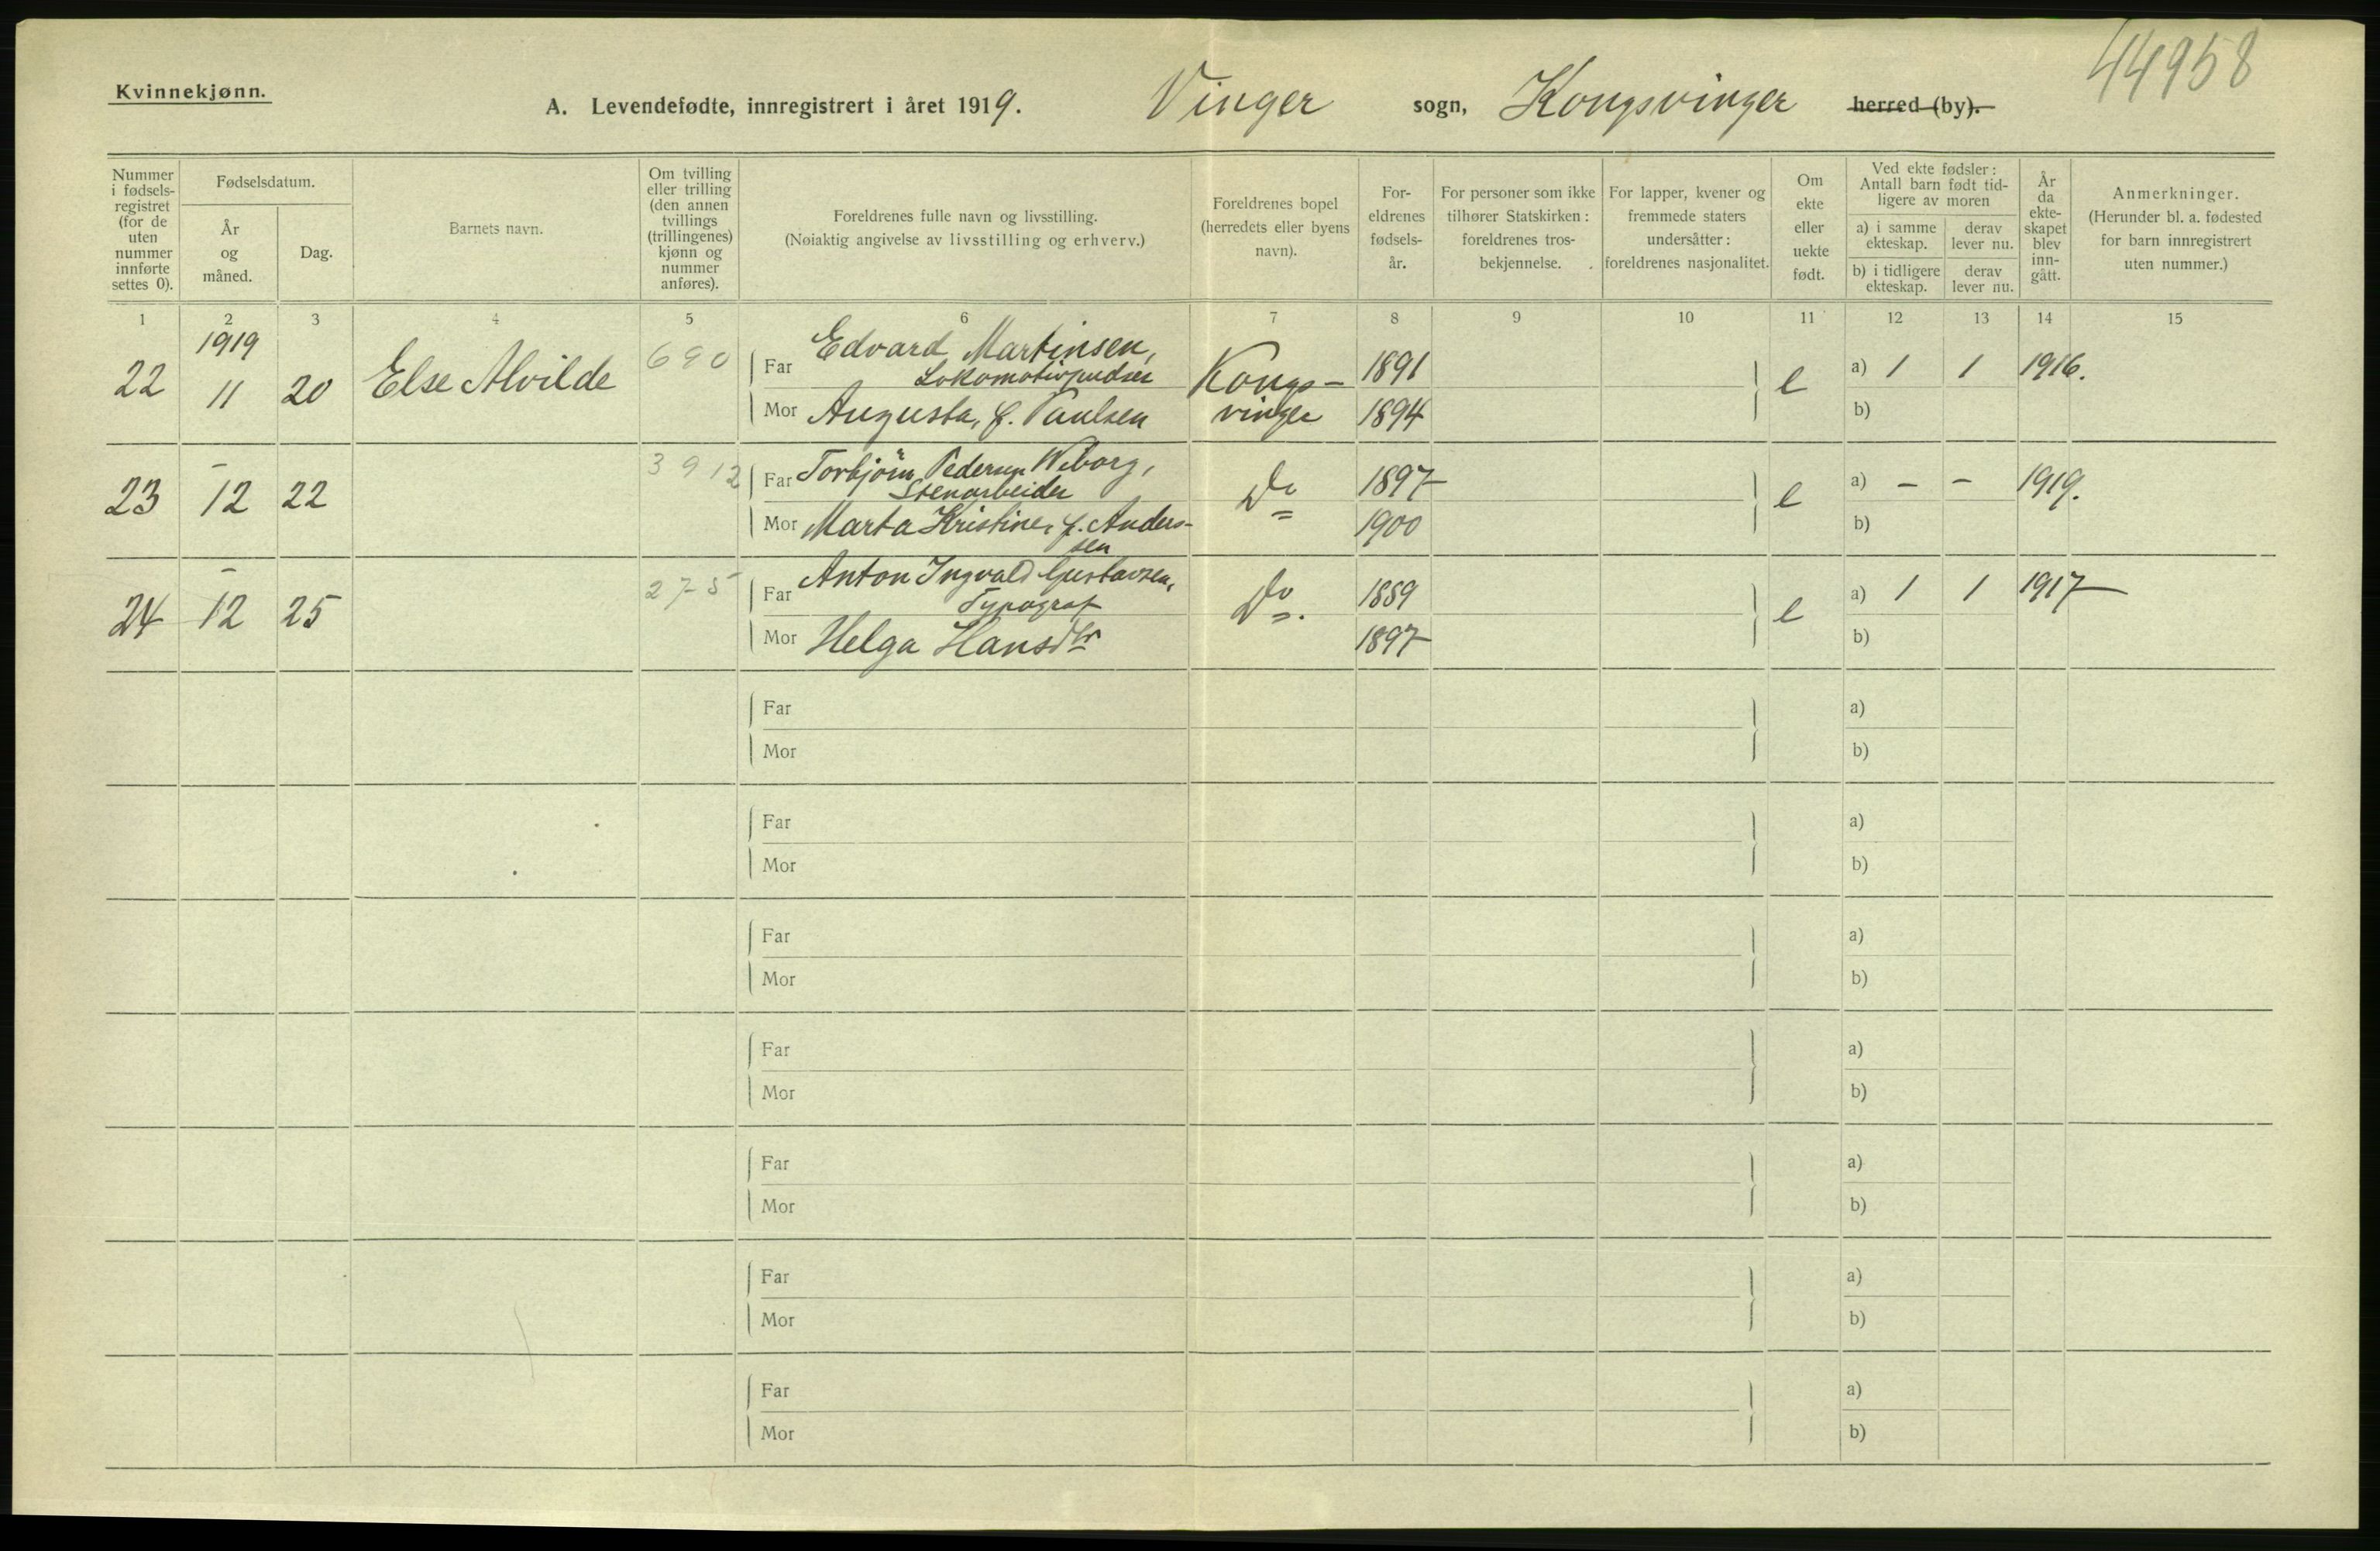 44958
Kvinnekjønn.
A. Levendefødte, innregistrert i året 1919. Vinger sogn, Kongsvinger herred (by).
Nummer i fødsels-registret (for de uten nummer innførte settes 0).
Fødselsdatum.
År og måned.
Dag.
Barnets navn.
Om tvilling eller trilling (den annen tvillings (trillingenes) kjønn og nummer anføres).
Foreldrenes fulle navn og livsstilling.
(Nøiaktig angivelse av livsstilling og erhverv.)
Foreldrenes bopel (herredets eller byens navn).
For-eldrenes fødsels-år.
For personer som ikke tilhører Statskirken: foreldrenes tros-bekjennelse.
For lapper, kvener og fremmede staters undersåtter: foreldrenes nasjonalitet.
Om ekte eller uekte født.
Ved ekte fødsler: Antall barn født tid-ligere av moren
a) i samme ekteskap.
derav lever nu.
b) i tidligere ekteskap.
derav lever nu.
År da ekte-skapet blev inn-gått.
Anmerkninger.
(Herunder bl. a. fødested for barn innregistrert uten nummer.)
1 2 3 4 5 6 7 8 9 10 11 12 13 14 15
1919
22 11 20 Else Alvilde 690 Far Edvard Martinsen,
Lokomotivpudser
Kongs-vinger 1891 e a) 1 1 1916.
Mor Augusta, f. Paulsen 1894 b)
23 – 12 22 3912 Far Torbjörn Pedersen Wiborg,
Stenarbeider
Do 1897 e a) – – 1919.
Mor Marta Kristine, f. Anders-
sen
1900 b)
24 – 12 25 275 Far Anton Ingvald Gustavsen,
Typograf
Do. 1889 e a) 1 1 1917
Mor Helga Hansdtr 1897 b)
Far a)
Mor b)
Far a)
Mor b)
Far a)
Mor b)
Far a)
Mor b)
Far a)
Mor b)
Far a)
Mor b)
Far a)
Mor b)